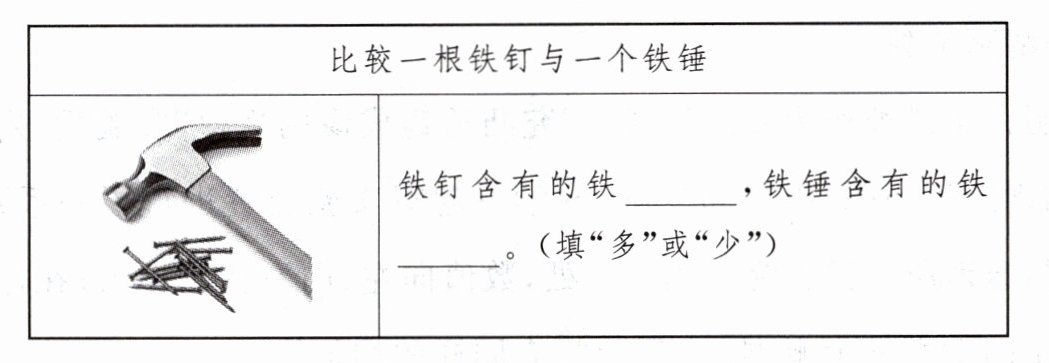 比较一根铁钉与一个铁锤
铁钉含有的铁______,铁锤含有的铁
______。(填“多”或“少”)